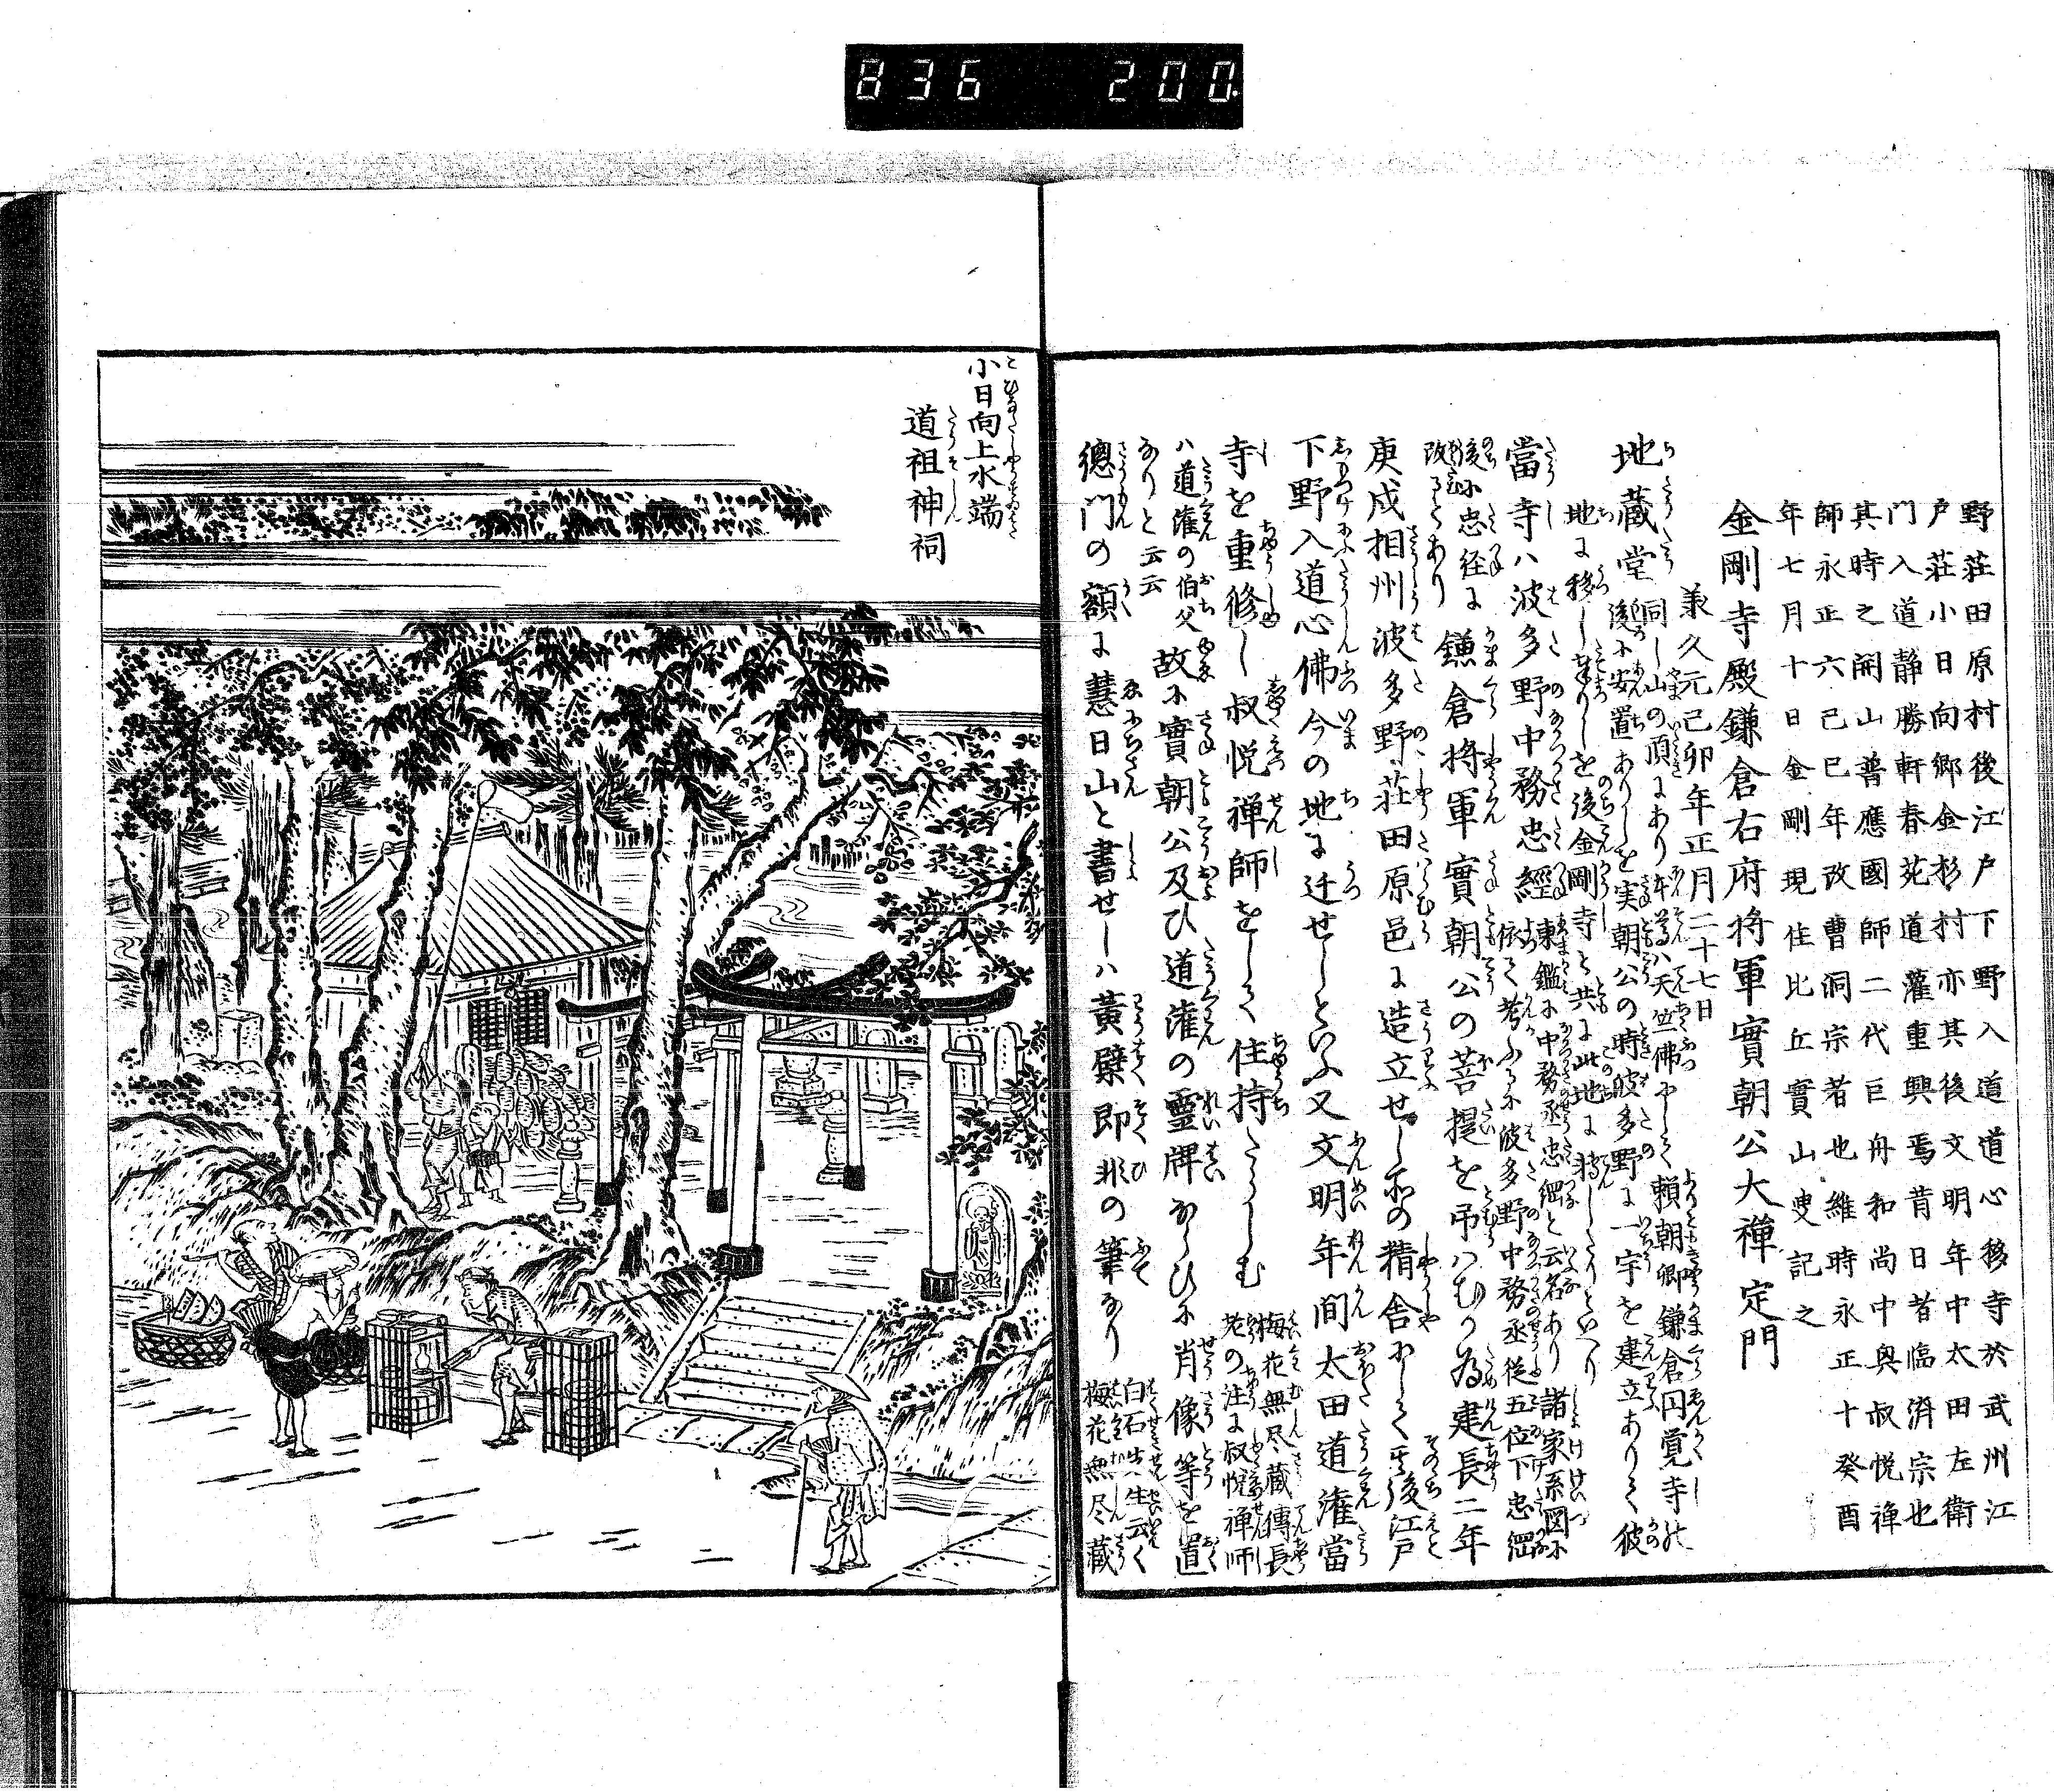 836 200.
野荘田原村後江戸下野入道道心移寺於武州江
戸荘小日向郷金杉村亦其後文明年中太田左衛
門入道静勝軒春苑道灌重興焉昔日者臨済宗也
其時之開山普應國師二代巨舟和尚中興叔悦禅
師永正六己巳年改曹洞宗者也維時永正十癸酉
年七月十日金剛現住比丘實山叟記之
金剛寺殿鎌倉右府将軍實朝公大禅定門
兼久元己卯年正月二十七日
地蔵堂
同し山の頂にあり本尊ハ天竺佛にして頼朝卿鎌倉円覚寺の
後に安置ありしを実朝公の時波多野に一宇を建立ありて彼
地に移しまゐらせしを後金剛寺と共に此地に移したりといへり
當寺ハ波多野中務忠經
東鑑に中務丞忠綱と云名あり諸家系図に
依て考ふるに波多野中務丞従五位下忠綱
後に忠経に
改るとあり
鎌倉将軍實朝公の菩提を吊ハむか為建長二年
庚戌相州波多野荘田原邑に造立せし所の精舎にして其後江戸
下野入道心佛今の地に迁せしといふ又文明年間太田道灌當
寺を重修し叔悦禅師をして住持たらしむ
梅花無尽蔵傳長
老の注に叔悦禅師
ハ道灌の伯父
なりと云云
故に實朝公及ひ道灌の霊牌ならひに肖像等を置
總門の額に慧日山と書せしハ黄檗即非の筆なり
白石先生云く
梅花無尽蔵
小日向上水端
道祖神祠